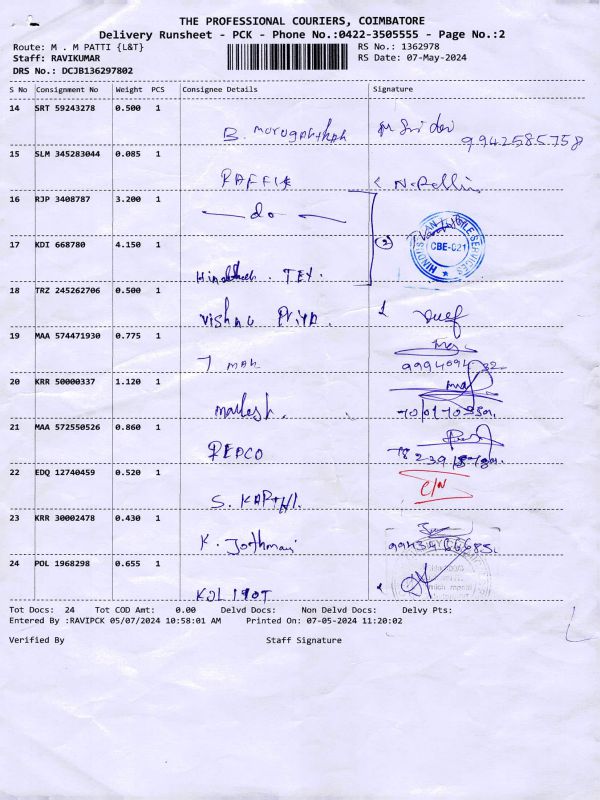 THE PROFESSIONAL COURIERS, COIMBATORE
Delivery Runsheet - PCK - Phone No.:0422-3505555 - Page No.:2
Route: M . M PATTI {L&T} RS No.: 1362978
Staff: RAVIKUMAR RS Date: 07-May-2024
DRS No.: DCJB136297802
S No Consignment No Weight PCS Consignee Details Signature
14 SRT 59243278 0.500 1
B. 9942585758
15 SLM 345283044 0.085 1
RAFFIK
16 RJP 3408787 3.200 1
do
17 KDI 668780 4.150 1 (2) HINDUSTAN SERVICES CBE-021
TEX.
18 TRZ 245262706 0.500 1
Vishnu Priya.
19 MAA 574471930 0.775 1
20 KRR 50000337 1.120 1
Mahesh.
21 MAA 572550526 0.860 1
REPCO
22 EDQ 12740459 0.520 1 C/N
S. KARTHI.
23 KRR 30002478 0.430 1
K. Jothmani
24 POL 1968298 0.655 1
Tot Docs: 24 Tot COD Amt: 0.00 Delvd Docs: Non Delvd Docs: Delvy Pts:
Entered By :RAVIPCK 05/07/2024 10:58:01 AM Printed On: 07-05-2024 11:20:02
Verified By Staff Signature